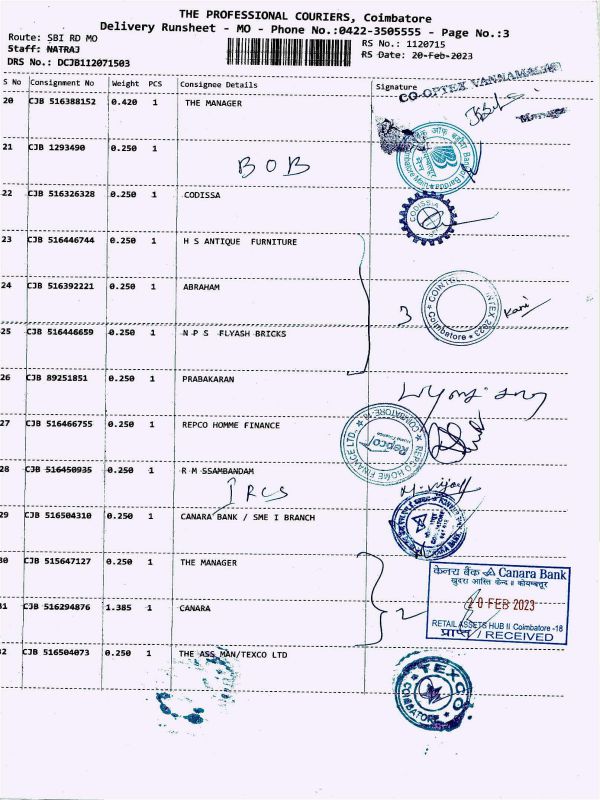 THE PROFESSIONAL COURIERS, Coimbatore
Delivery Runsheet - MO - Phone No.:0422-3505555 - Page No.:3
Route: SBI RD MO
RS No.: 1120715
Staff: NATRAJ
RS Date: 20-Feb-2023
DRS No.: DCJB112071503
S No Consignment No Weight PCS Consignee Details Signature
CO-OPTEX
Manager
20 CJB 516388152 0.420 1 THE MANAGER
21 CJB 1293490 0.250 1
BOB
22 CJB 516326328 0.250 1 CODISSA
CODISSIA
23 CJB 516446744 0.250 1 H S ANTIQUE FURNITURE
24 CJB 516392221 0.250 1 ABRAHAM
3
Coimbatore
INTEX 2023
25 CJB 516446659 0.250 1 N P S FLYASH BRICKS
26 CJB 89251851 0.250 1 PRABAKARAN
27 CJB 516466755 0.250 1 REPCO HOMME FINANCE
REPCO HOME FINANCE LTD. COIMBATORE-18
Repco
28 CJB 516450935 0.250 1 R M SSAMBANDAM
IRCS
M. Vijay
29 CJB 516504310 0.250 1 CANARA BANK / SME I BRANCH
30 CJB 515647127 0.250 1 THE MANAGER
केनरा बैंक Canara Bank
20 FEB 2023
31 CJB 516294876 1.385 1 CANARA
2
RETAIL ASSETS HUB II Coimbatore -18
प्राप्त / RECEIVED
32 CJB 516504073 0.250 1 THE ASS MAN/TEXCO LTD
TEXCO
COIMBATORE